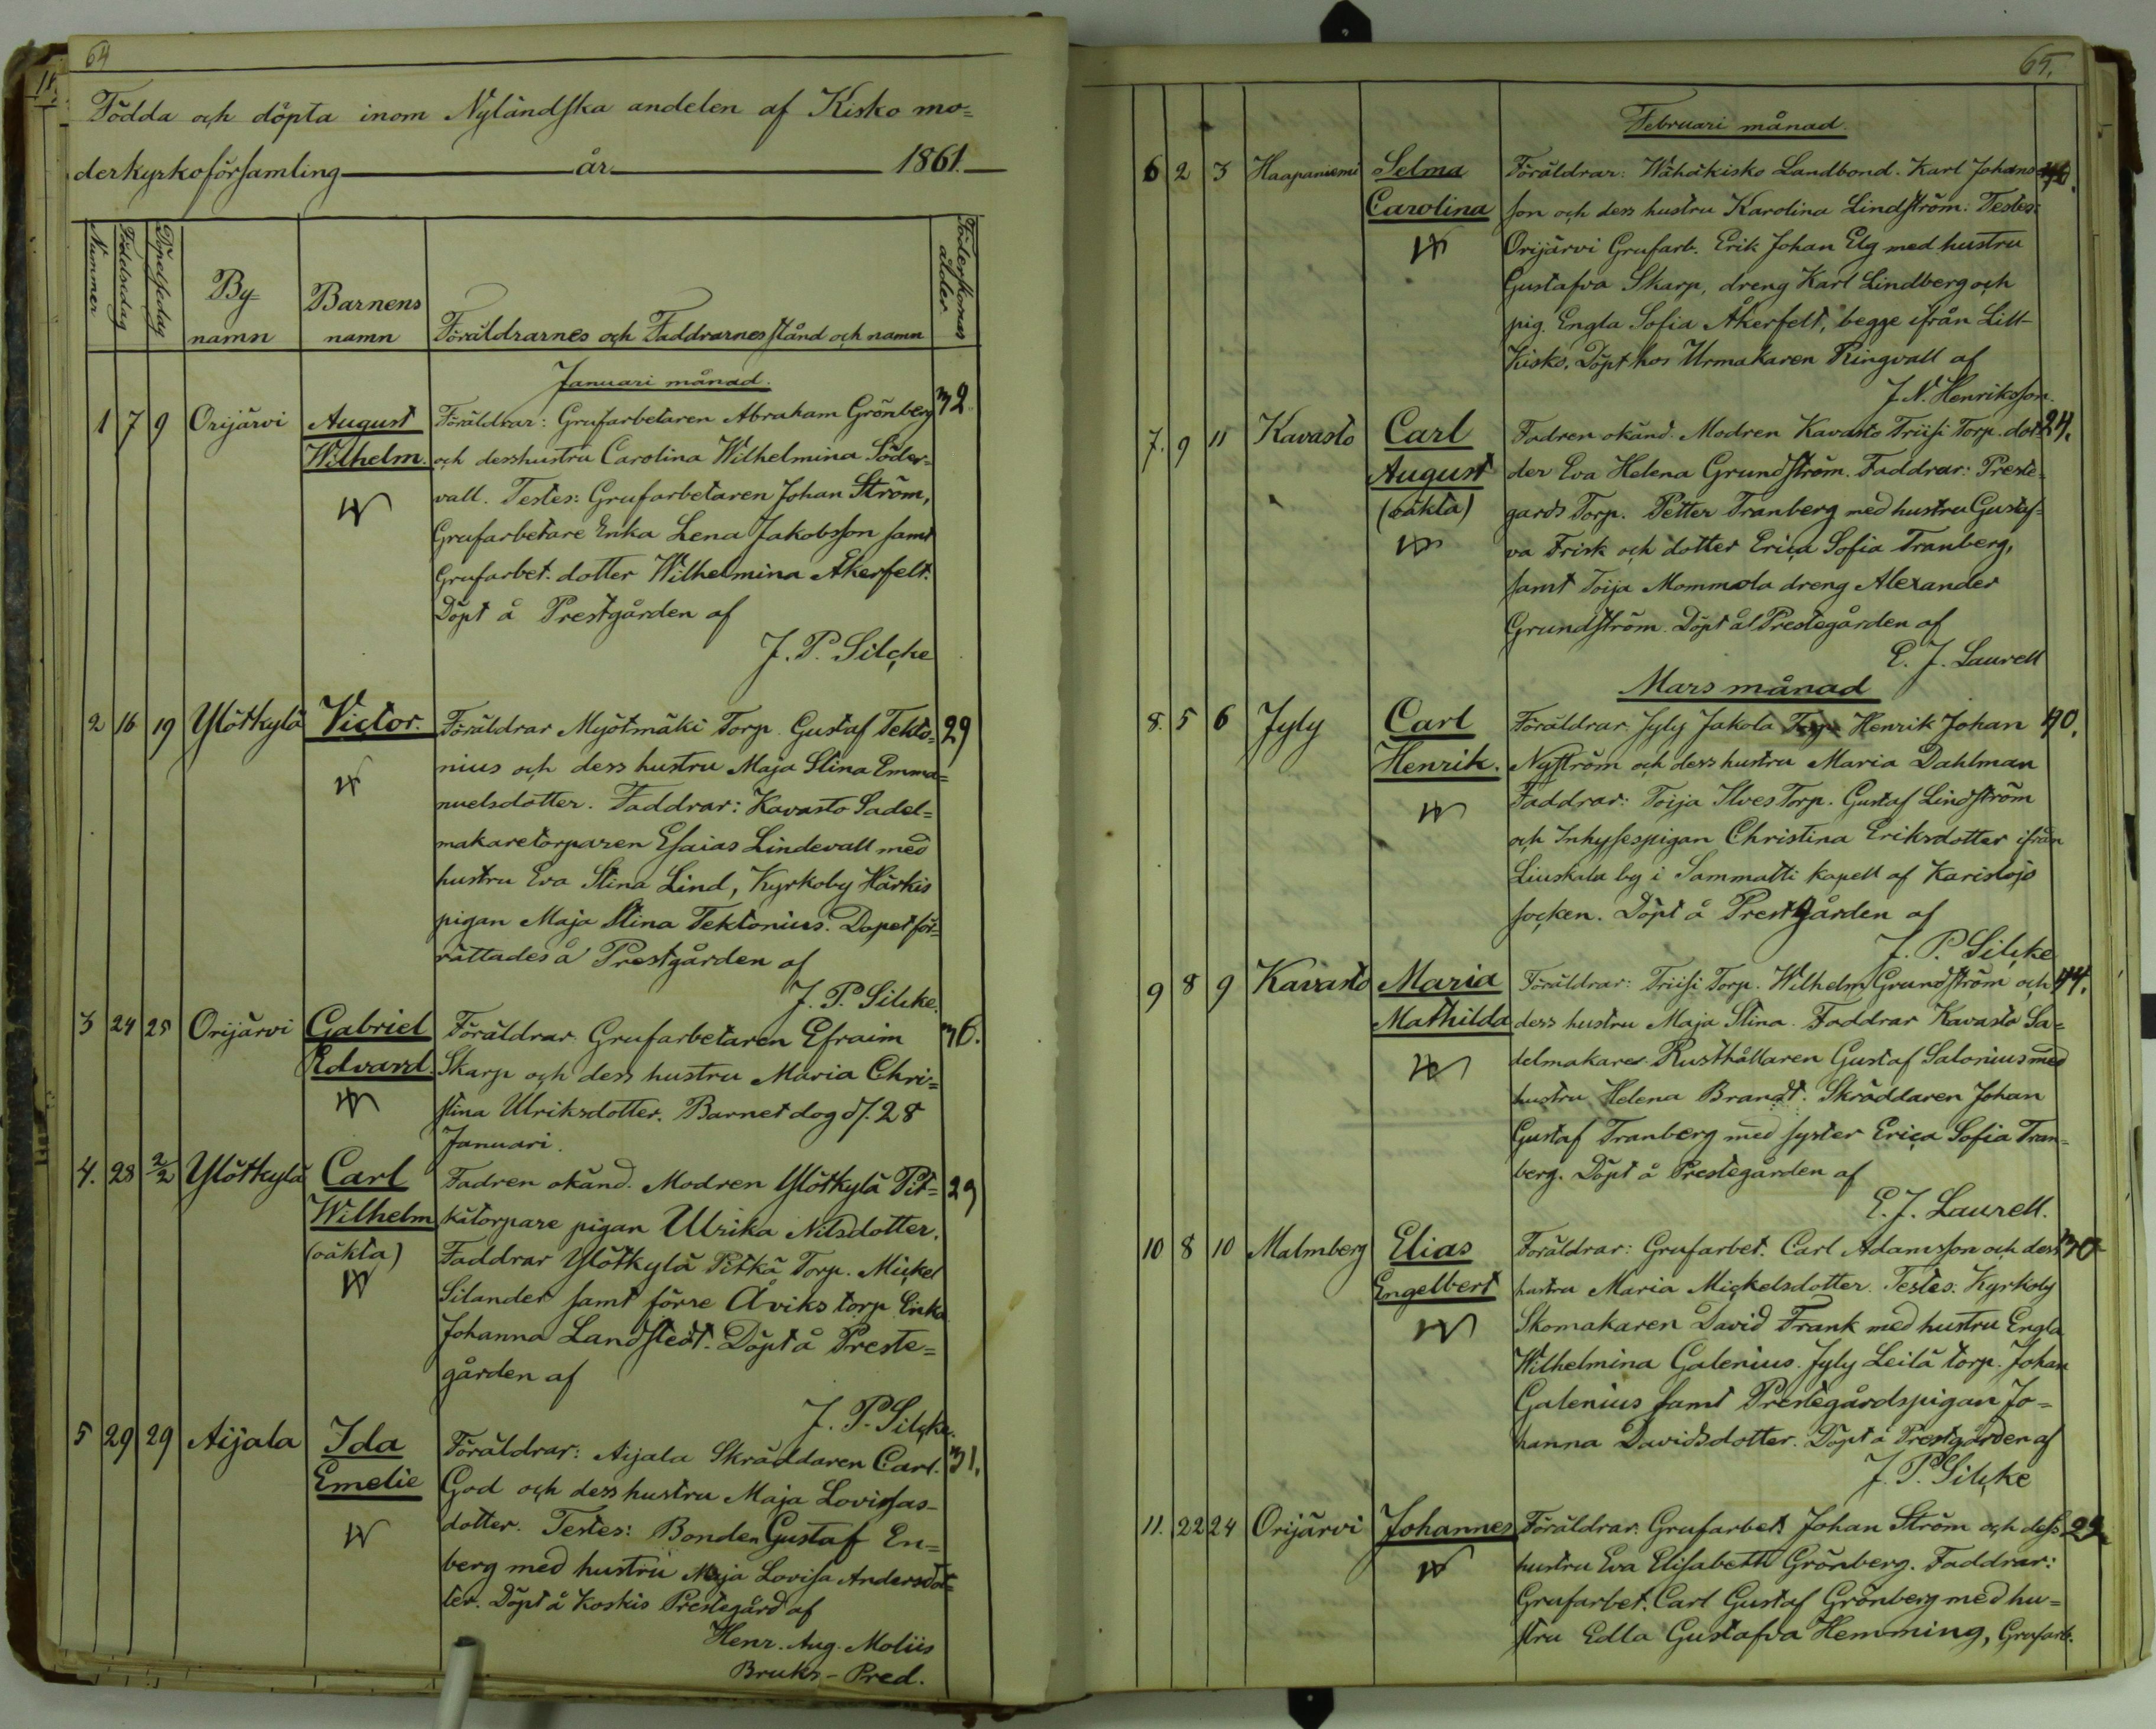 64
Födda och döpta inom Nyländska andelen af Kisko mo=
derkyrkoförsamling år 1861.
Nummer Födelsedag Döpelsedag By= namn Barnens namn Föräldrarnes och Faddrarnes stånd och namn Föderskornas ålder
Januari månad.
1 7 9 Orijärvi August Föräldrar: Grufarbetaren Abraham Grönberg 32
Wilhelm. och dess hustru Carolina Wilhelmina Söder=
vall. Testes: Grufarbetaren Johan Ström,
Grufarbetare Enka Lena Jakobsson samt
Grufarbet. dotter Wilhelmina Åkerfelt.
Döpt å Prestgården af
J. P. Silcke
2 16 19 Ylötkylä Victor. Föräldrar Myötmäki Torp. Gustaf Tekto= 29
nius och dess hustru Maja Stina Emma=
nuelsdotter. Faddrar: Kavasto Sadel=
makaretorparen Esaias Lindevall med
hustru Eva Stina Lind, Kyrkoby Härkis
pigan Maja Stina Tektonius. Dopet för=
rättades å Prestgården af
J. P. Silcke.
3 24 25 Orijärvi Gabriel Föräldrar Grufarbetaren Efraim 36.
Edvard. Skarp och dess hustru Maria Chri=
stina Ulriksdotter. Barnet dog d. 28
Januari.
4. 28 2/2 Ylötkylä Carl Fadren okänd. Modren Ylötkylä Pit= 29
Wilhelm kätorpare pigan Ulrika Nilsdotter.
(oäkta) Faddrar Ylötkylä Pitkä Torp. Mickel
Silander samt förre Åviks torp Enka
Johanna Landstedt. Döpt å Preste=
gården af
J. P. Silcke.
5 29 29 Aijala Ida Föräldrar: Aijala Skräddaren Carl. 31.
Emelie God och dess hustru Maja Lovisas-
dotter. Testes: Bonden Gustaf En=
berg med hustru Maja Lovisa Andersdot=
ter. Döpt å Koskis Prestegård af
Henr. Aug. Moliis
Bruks-Pred.
65.
Februari månad.
6 2 3 Haapaniemi Selma Föräldrar: Wähäkisko Landbond. Karl Johans
Carolina son och dess hustru Karolina Lindström: Testes:
Orijärvi Grufarb. Erik Johan Elg med hustru
Gustafva Skarp, dreng Karl Lindberg och
pig. Engla Sofia Åkerfelt, begge ifrån Lill-
Kisko. Döpt hos Urmakaren Ringvall af
J. N. Henriksson.
7. 9 11 Kavasto Carl Fadren okänd. Modren Kavasto Triisi Torp. dot 24.
August der Eva Helena Grundström. Faddrar: Preste-
(oäkta) gards Torp. Petter Tranberg med hustru Gustaf=
va Frisk och dotter Erica Sofia Tranberg,
samt Toija Mommola dreng Alexander
Grundström. Döpt å Prestegården af
E. J. Laurell
Mars månad
8. 5 6 Jyly Carl Föräldrar. Jyly Jakola Torp. Henrik Johan 40.
Henrik. Nyström och dess hustru Maria Dahlman
Faddrar: Toija Ilves Torp. Gustaf Lindström
och Inhysespigan Christina Eriksdotter ifrån
Liuskala by i Sammatti kapell af Karislojo
socken. Döpt å Prestgården af
J. P. Silcke
9 8 9 Kavasto Maria Föräldrar: Triisi Torp. Wilhelm Grundström och 44.
Mathilda dess hustru Maja Stina. Faddrar Kavasto Sa=
delmakare Rusthållaren Gustaf Salonius med
hustru Helena Brandt. Skräddaren Johan
Gustaf Tranberg med syster Erica Sofia Tran=
berg. Döpt å Prestegården af
E. J. Laurell.
10 8 10 Malmberg Elias Föräldrar: Grufarbet. Carl Adamsson och dess 30
Engelbert hustru Maria Mickelsdotter. Testes: Kyrkoby
Skomakaren David Frank med hustru Engla
Wilhelmina Galenius. Jyly Leilä torp. Johan
Galenius samt Prestegårdspigan Jo=
hanna Davidsdotter. Döpt å Prestgården af
J. P. Silcke
11. 22 24 Orijärvi Johannes Föräldrar. Grufarbet. Johan Ström och dess 29
hustru Eva Elisabeth Grönberg. Faddrar:
Grufarbet. Carl Gustaf Grönberg med hu=
stru Edla Gustafva Hemming, Grufarb.